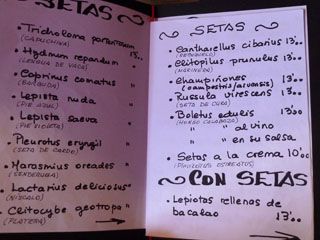 SETAS
• Tricholoma portentosum
(CAPUCHINA)
• Hydnum repandum 13'..
(LENGUA DE VACA)
• Coprinus comatus "
(BARBUDA)
• Lepista nuda "
(PIE AZUL)
• Lepista saeva "
(PIE VIOLETA)
• Pleurotus eryngii "
(SETA DE CARDO)
• Marasmius oreades "
(SENDERUELA)
• Lactarius deliciosus "
(NISCALO)
• Clitocybe geotropa "
(PLATERA)
~ SETAS ~
• Cantharellus cibarius 13'00
(REBOZUELO)
• Clitopilus prunulus 13'00
• Champiñones 13'00
(campestris/arvensis)
• Russula virescens 13'00
(SETA DE CURA)
• Boletus edulis 13'00
(HONGO CALABAZA)
" " al vino
" " en su salsa
• Setas a la crema 10'00
(PLEUROTUS OSTREATUS)
~ CON SETAS
• Lepiotas rellenas de
bacalao 13'00